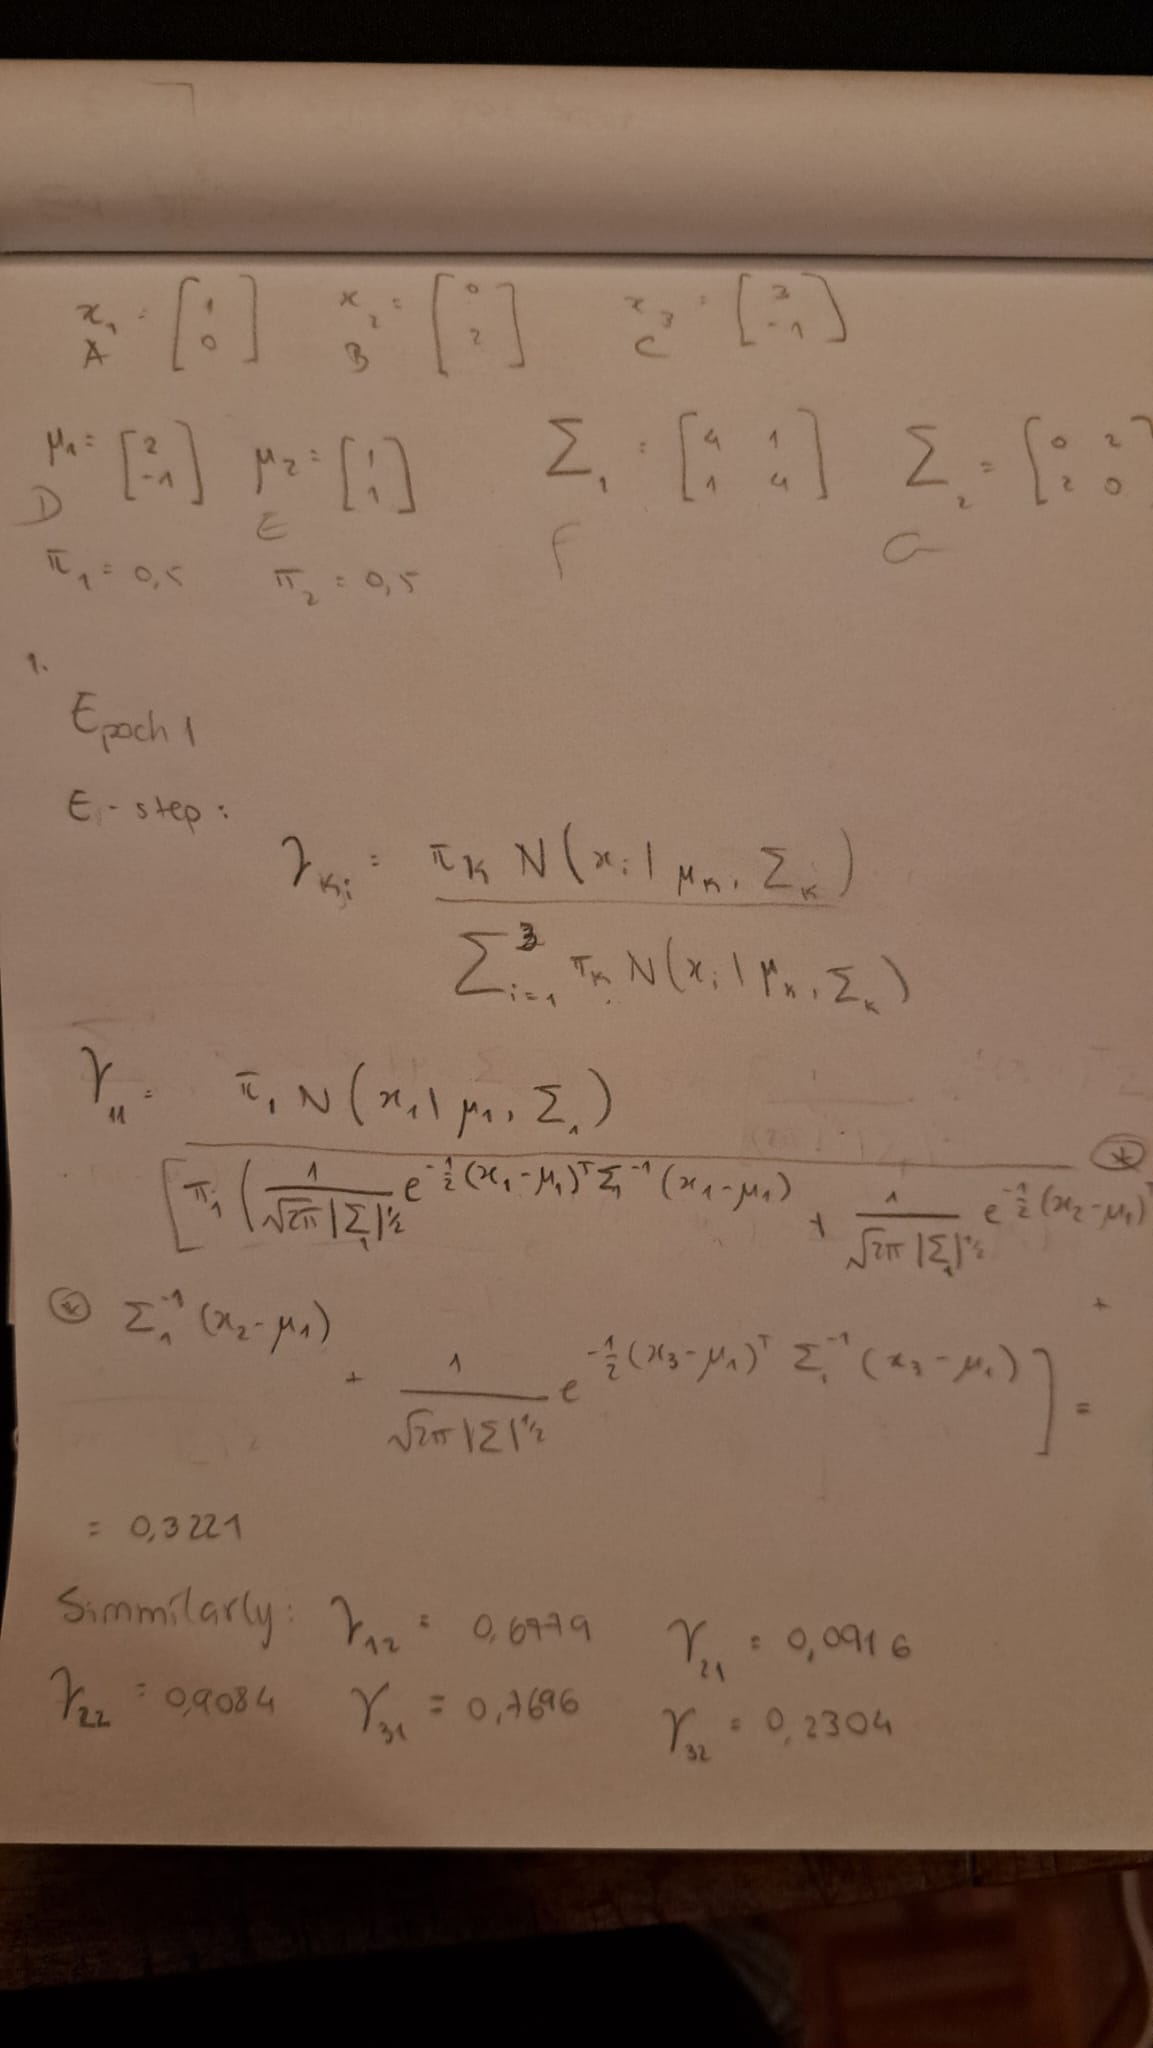 x₁ = [1 0] x₂ = [0 2] x₃ = [3 -1]
A B C
μ₁ = [2 -1] μ₂ = [1 1] Σ₁ = [4 1 1 4] Σ₂ = [0 2 2 0]
D E F G
π₁ = 0,5 π₂ = 0,5
1.
Epoch 1
E - step :
γₖᵢ = πₖ N(xᵢ | μₖ, Σₖ) / Σᵢ₌₁³ πₖ N(xᵢ | μₖ, Σₖ)
γ₁₁ = π₁ N(x₁ | μ₁, Σ₁)
[π₁ (1/(√2π |Σ₁|^½) e^(-½ (x₁-μ₁)ᵀ Σ₁⁻¹ (x₁-μ₁)) + 1/(√2π |Σ₁|^½) e^(-½ (x₂-μ₁)ᵀ ⊛
⊛ Σ₁⁻¹ (x₂-μ₁) +
+ 1/(√2π |Σ|^½) e^(-½ (x₃-μ₁)ᵀ Σ₁⁻¹ (x₃-μ₁)) ] =
= 0,3221
Simmilarly: γ₁₂ = 0,6779 γ₂₁ = 0,0916
γ₂₂ = 0,9084 γ₃₁ = 0,7696 γ₃₂ = 0,2304